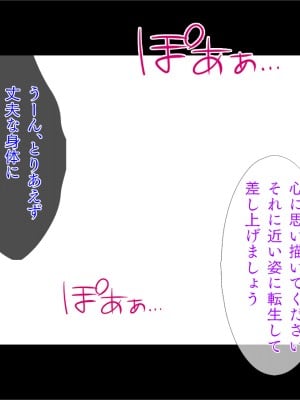 ぽぁぁ…
心に思い描いてください
それに近い姿に転生して
差し上げましょう
うーん、とりあえず
丈夫な身体に
ぽぁぁ…